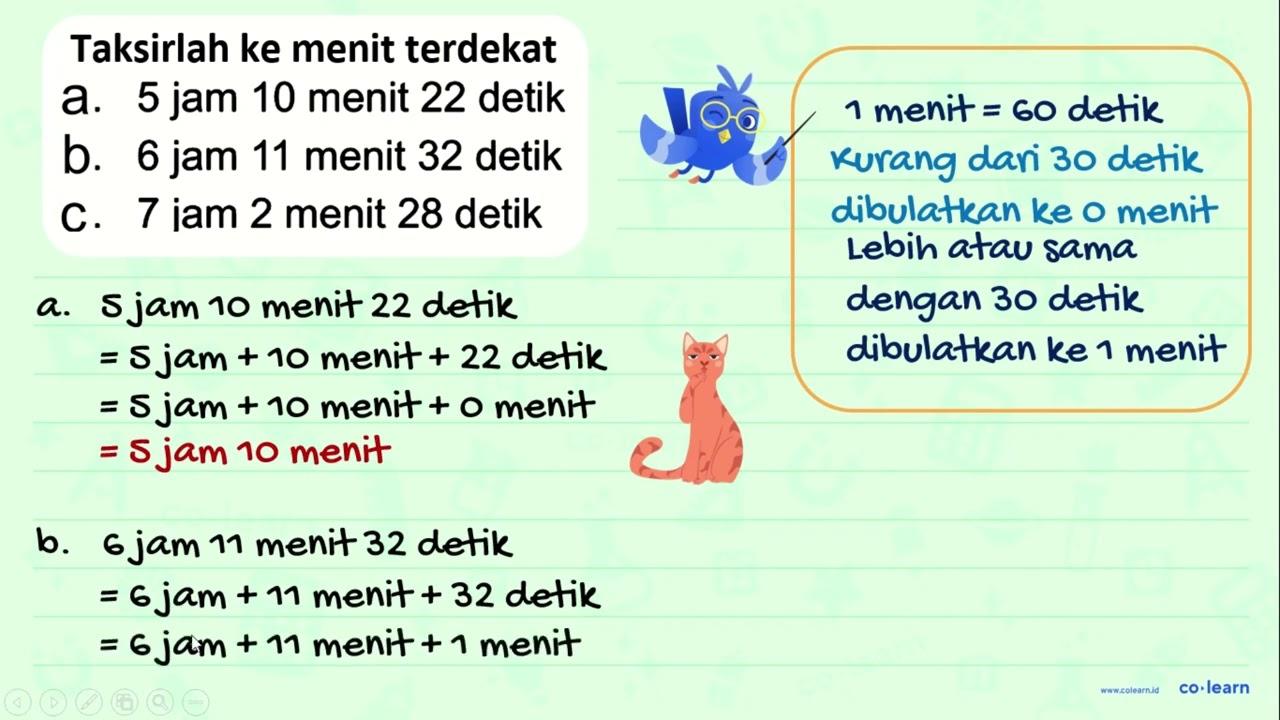 Taksirlah ke menit terdekat
a. 5 jam 10 menit 22 detik
b. 6 jam 11 menit 32 detik
c. 7 jam 2 menit 28 detik
1 menit = 60 detik
Kurang dari 30 detik
dibulatkan ke 0 menit
Lebih atau sama
dengan 30 detik
dibulatkan ke 1 menit
a. 5 jam 10 menit 22 detik
= 5 jam + 10 menit + 22 detik
= 5 jam + 10 menit + 0 menit
= 5 jam 10 menit
b. 6 jam 11 menit 32 detik
= 6 jam + 11 menit + 32 detik
= 6 jam + 11 menit + 1 menit
www.colearn.id co·learn